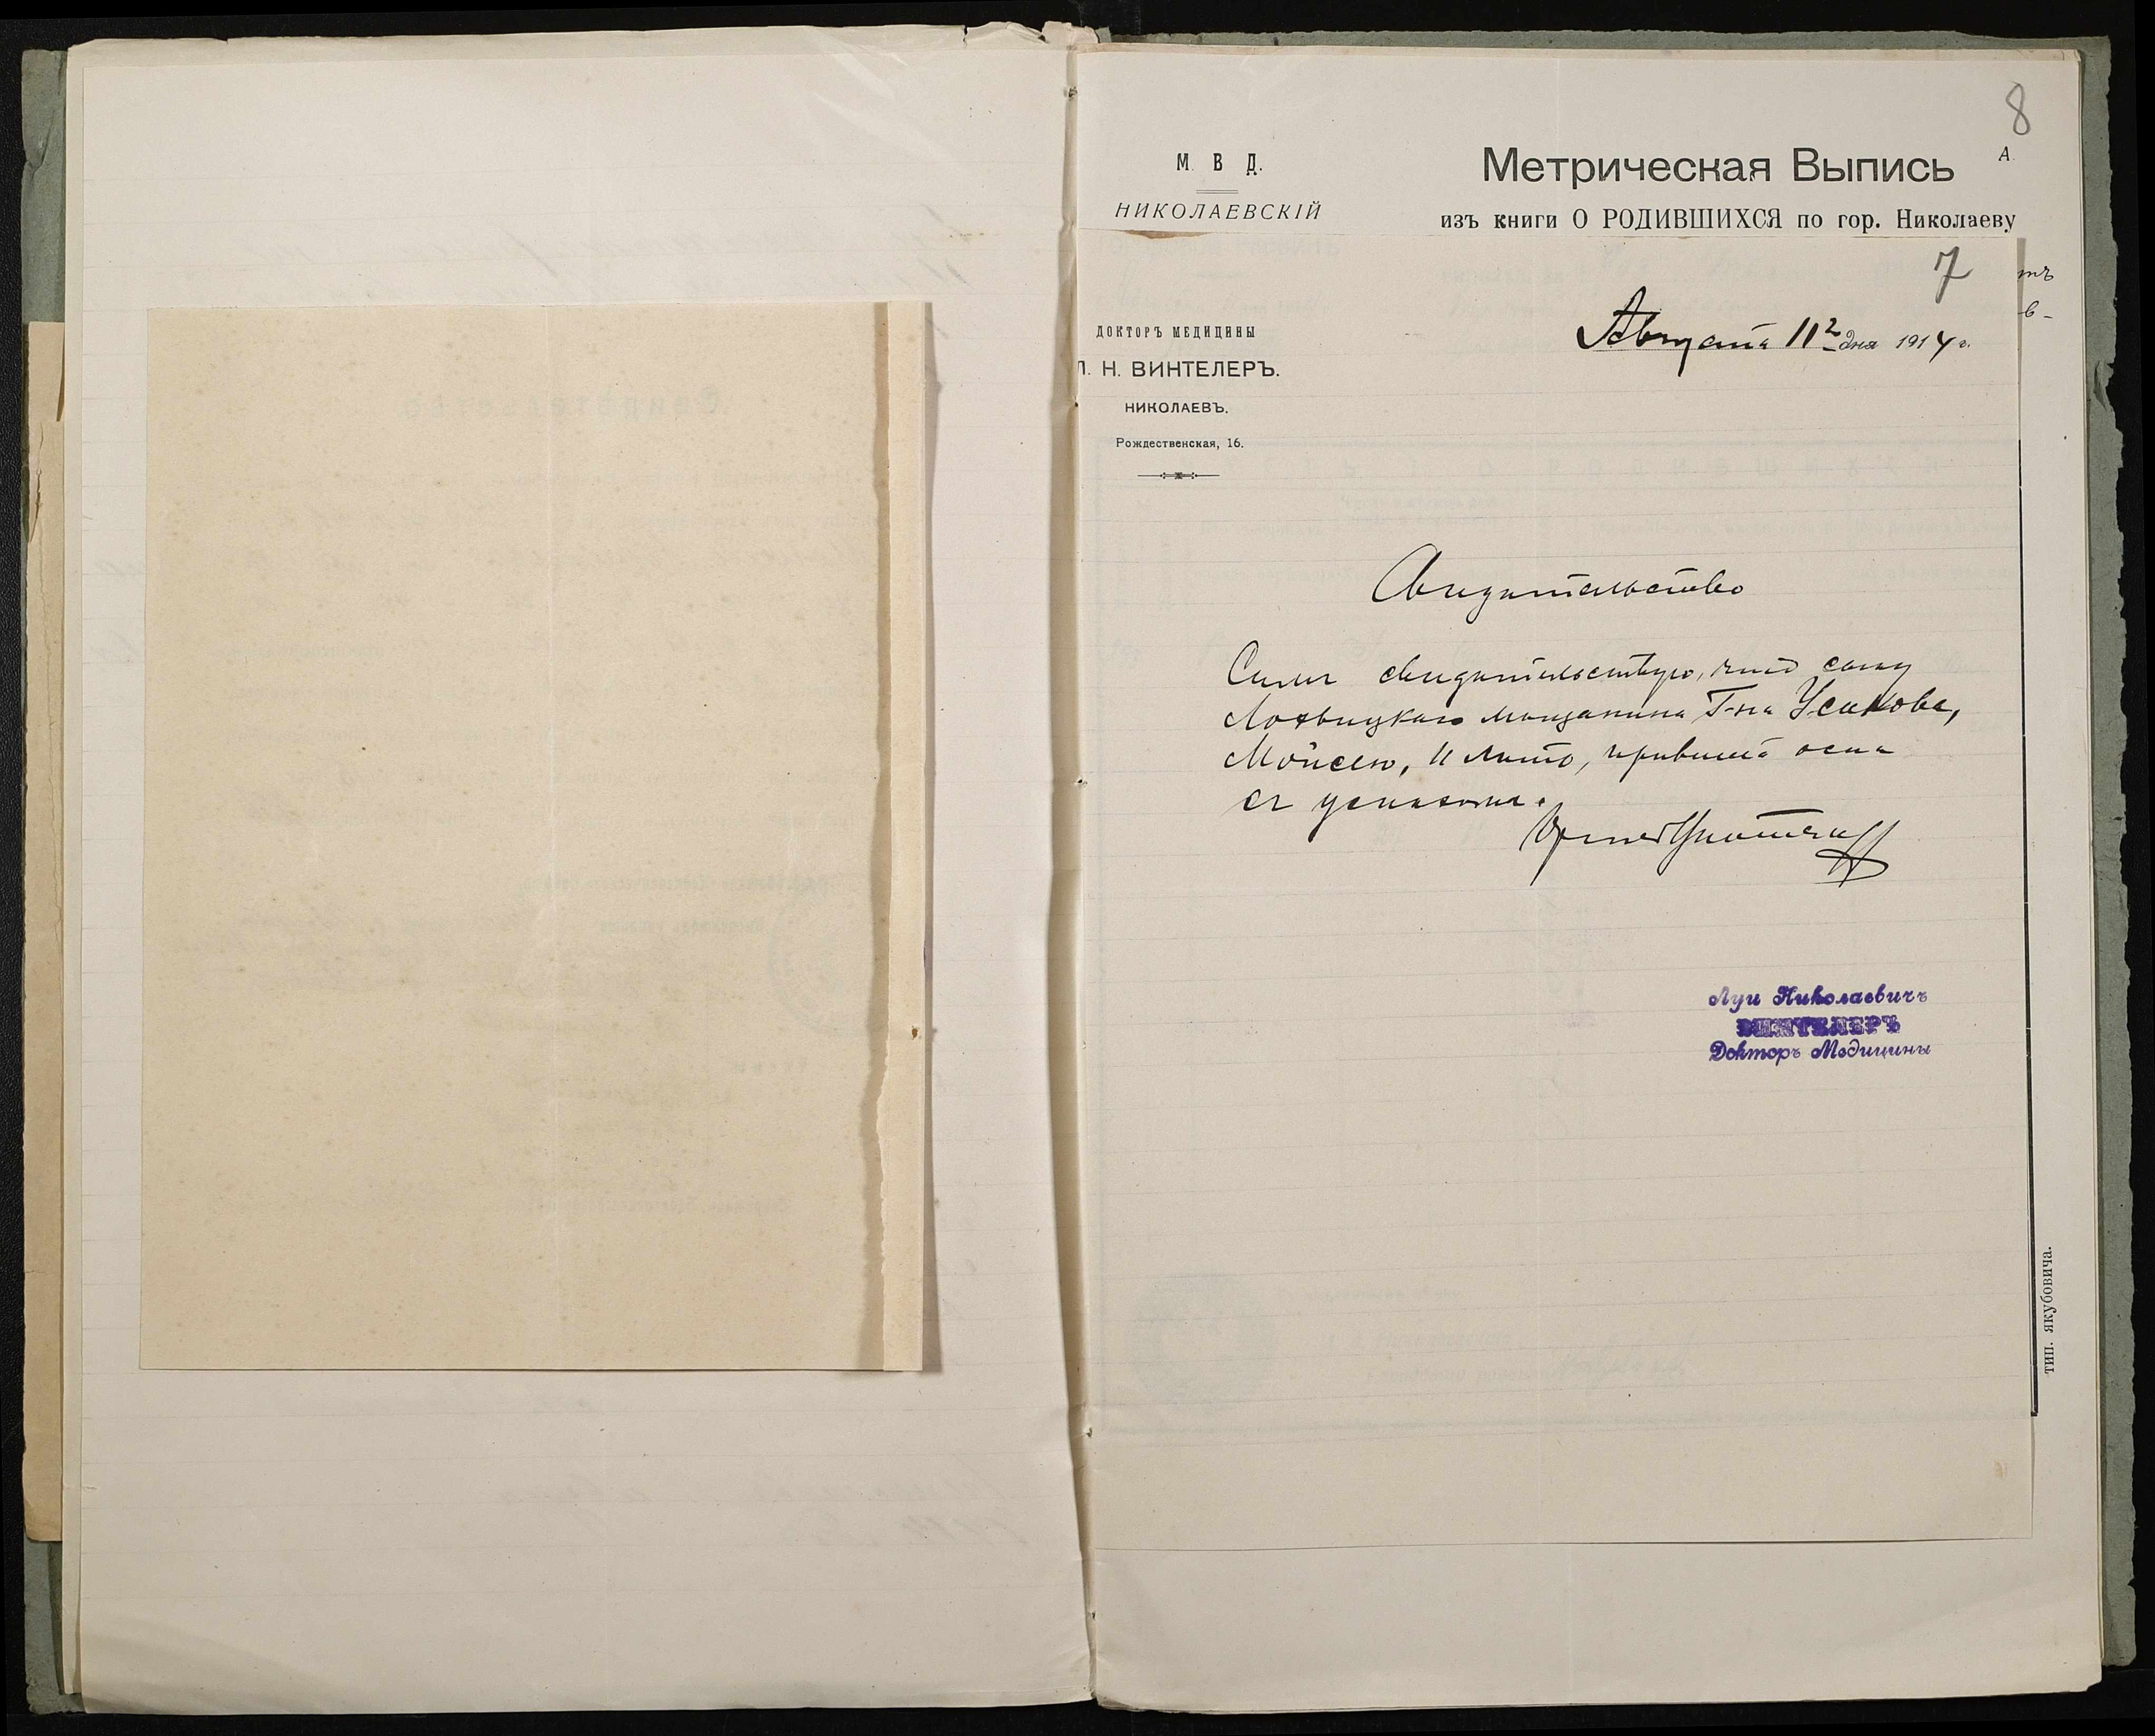 8
М. В. Д.
НИКОЛАЕВСКІЙ
Метрическая Выпись
А.
изъ книги О РОДИВШИХСЯ по гор. Николаеву
7
тъ
в-
ДОКТОРЪ МЕДИЦИНЫ
Л. Н. ВИНТЕЛЕРЪ.
НИКОЛАЕВЪ.
Рождественская, 16.
Августа 11го дня 1914 г.
Свидѣтельство
Симъ свидѣтельствую, что сыну
Лохвицкаго мѣщанина Г-на Усикова,
Мойсею, 11 лѣтъ, привита оспа
съ успѣхомъ.
Луи Николаевичъ
ВИНТЕЛЕРЪ
Докторъ Медицины
тип. якубовича.